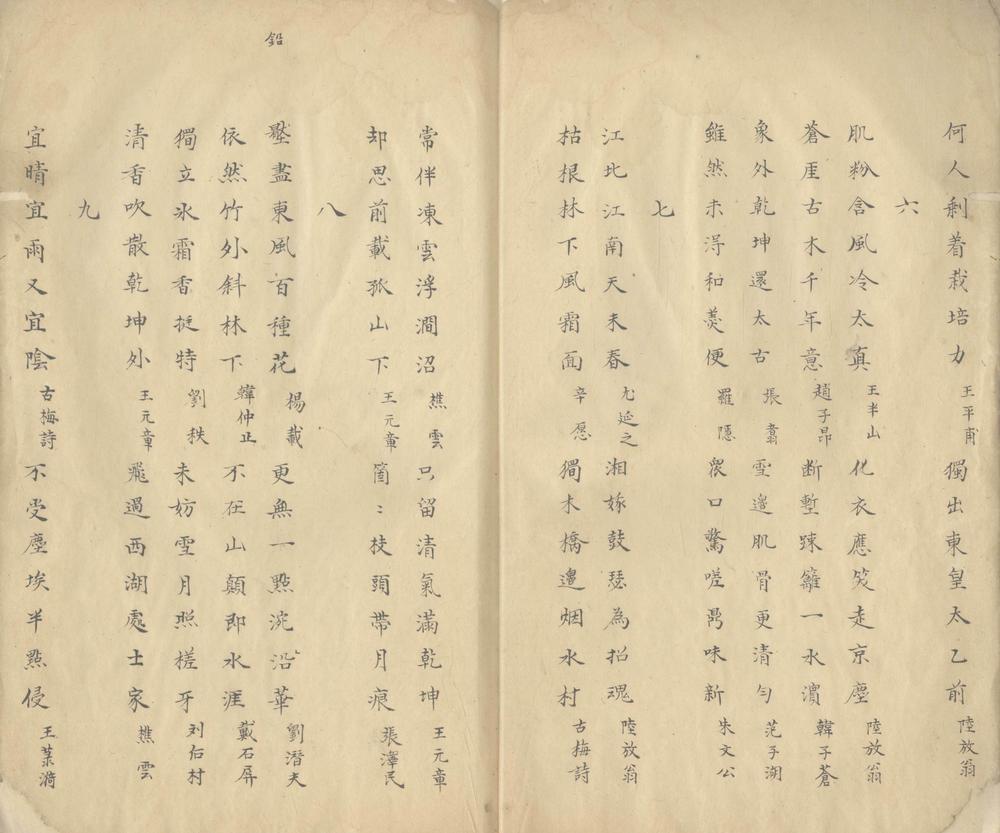 何人剩着栽培力 王平甫 獨出東皇太乙前 陸放翁
六
肌粉含風冷太真 王半山 化衣應笑走京塵 陸放翁
蒼厓古木千年意 趙子昂 断塹踈籬一水濱 韓子蒼
象外乾坤還太古 張翥 雪邉肌骨更清勻 范子湖
雖然未淂和羮便 羅隱 衆口驚嗟鼎味新 朱文公
七
江北江南天未春 尤延之 湘嫁鼓瑟為招魂 陸放翁
枯根林下風霜面 辛愿 獨木橋邉烟水村 古梅詩
常伴凍雲浮澗沼 樵雲 只留清氣滿乾坤 王元章
却思前載孤山下 王元章 箇〻枝頭帶月痕 張澤民
八
壓盡東風百種花 楊載 更無一點涴沿華 劉潛夫
鉛
依然竹外斜林下 韓仲止 不在山顛即水涯 戴石屏
獨立氷霜香挺特 劉秩 未妨雪月照槎牙 刘后村
清香吹散乾坤外 王元章 飛過西湖處士家 樵雲
九
宜晴宜雨又宜陰 古梅詩 不受塵埃半點侵 王菉漪